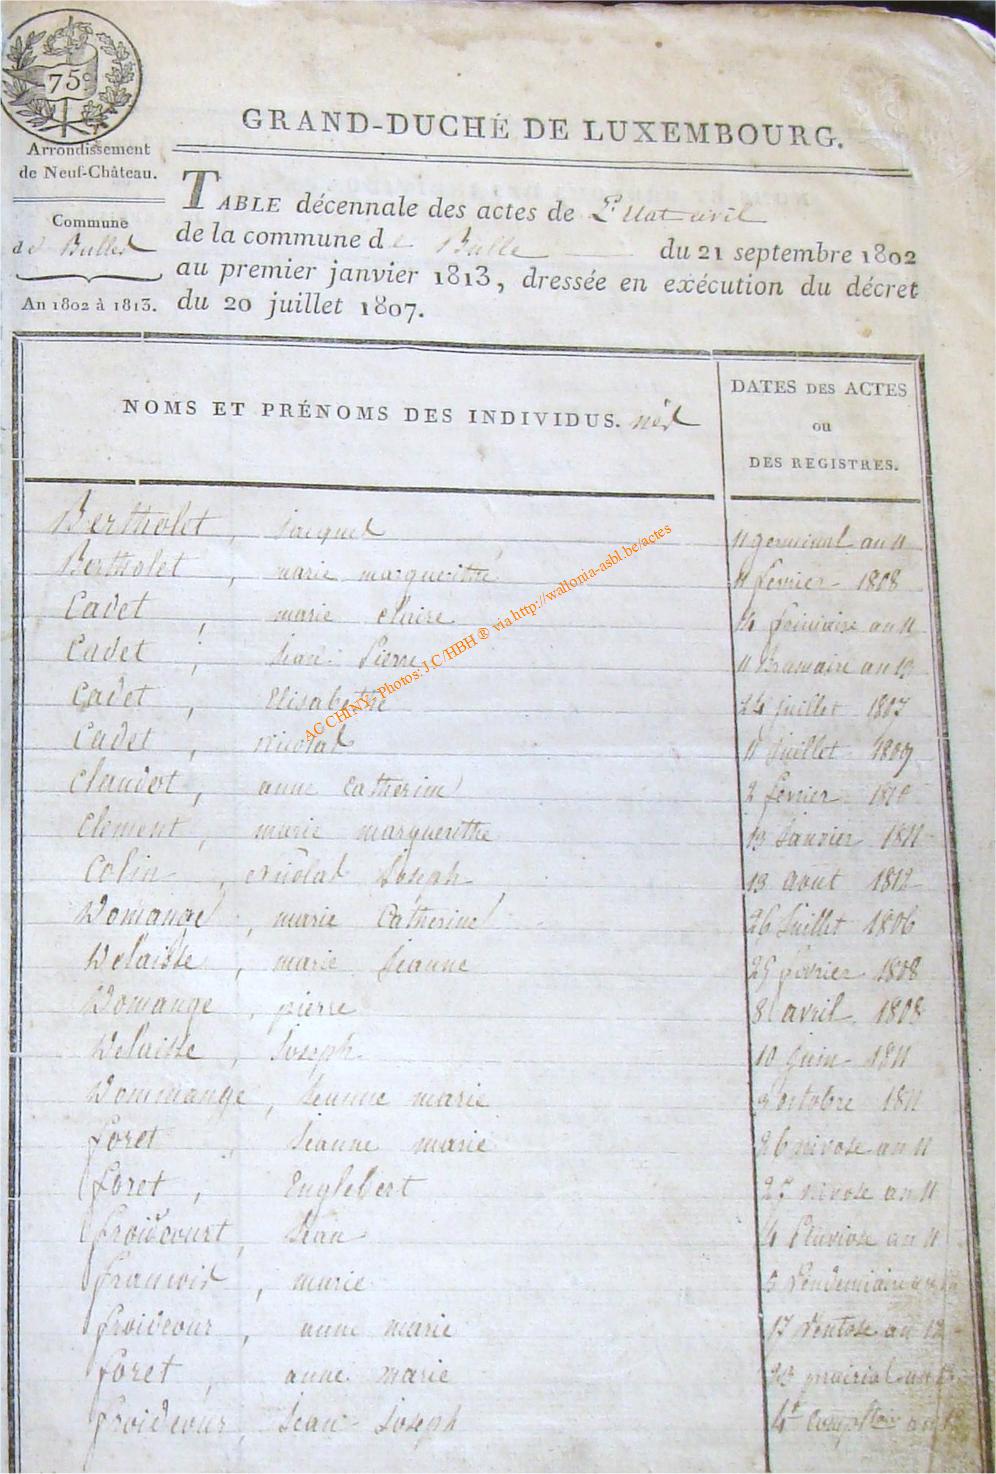 75c
GRAND-DUCHÉ DE LUXEMBOURG.
Arrondissement
de Neuf-Château.
Commune
de Bulles
An 1802 à 1813.
TABLE décennale des actes de L'Etat civil
de la commune de Bulle du 21 septembre 1802
au premier janvier 1813, dressée en exécution du décret
du 20 juillet 1807.
NOMS ET PRÉNOMS DES INDIVIDUS. nés
DATES DES ACTES
ou
DES REGISTRES.
Bertholet Jacques 11 germinal an 11
Bertholet, marie margueritte 11 fevrier 1808
Cadet, marie claire 14 frimaire an 11
Cadet, Jean Pierre 11 Brumaire an 13
Cadet, Elisabethe 24 juillet 1807
Cadet, nicolas 11 Juillet 1809
Claudot, anne Catherine 2 fevrier 1810
Clement, marie margueritte 13 Janvier 1811
Colin, nicolas Joseph 13 aout 1812
Domange, marie Catherine 26 Juillet 1806
Delaisse, marie Jeanne 25 fevrier 1808
Domange, pierre 8 avril 1808
Delaisse, Joseph 10 Juin 1811
Dommange, Jeanne marie 9 octobre 1811
foret, Jeanne marie 26 nivose an 11
foret, Englebert 27 nivose an 11
froidcourt, Jean 4 Pluviose an 11
francois, marie 5 Vendemiaire an
froidcour, anne marie 17 Ventose an 12
foret, anne marie 23 prairial an
froidcour, Jean Joseph 4e Complre an
AC CHINY, Photos: J.C/HBH ® via http://wallonia-asbl.be/actes